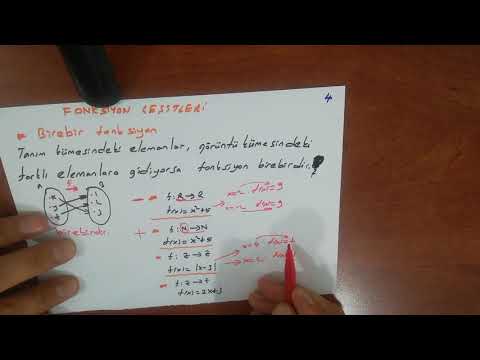 4
FONKSİYON ÇEŞİTLERİ
Birebir fonksiyon
Tanım kümesindeki elemanlar, görüntü kümesindeki
farklı elemanlara gidiyorsa fonksiyon birebirdir.
A f B
birebirdir.
- f: R→R
f(x)=x²+5
x=2
+ f: N→N
f(x)=x²+5
- f: Z→Z
f(x)=|x-3|
x=4
x=2
- f: Z→
f(x)=2x+3